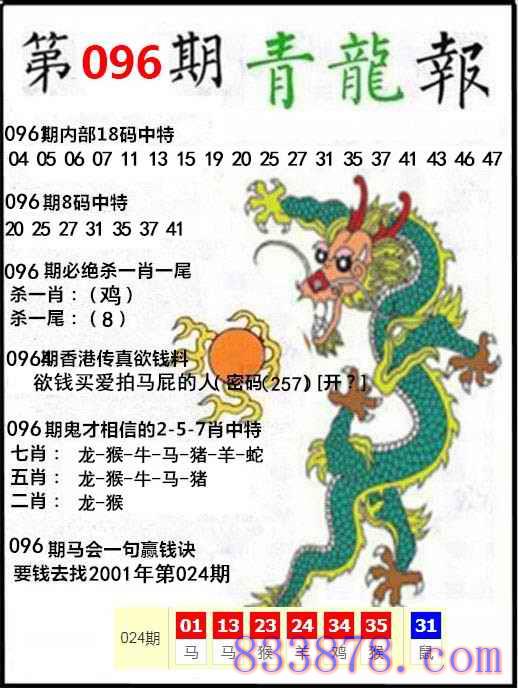 第096期青龍報
096期内部18码中特
04 05 06 07 11 13 15 19 20 25 27 31 35 37 41 43 46 47
096期8码中特
20 25 27 31 35 37 41
096期必绝杀一肖一尾
杀一肖：（鸡）
杀一尾：（8）
096期香港传真欲钱料
欲钱买爱拍马屁的人（密码(257)[开？]
096期鬼才相信的2-5-7肖中特
七肖： 龙-猴-牛-马-猪-羊-蛇
五肖： 龙-猴-牛-马-猪
二肖： 龙-猴
096期马会一句赢钱诀
要钱去找2001年第024期
024期 01 13 23 24 34 35 31
马 马 猴 羊 鸡 猴 鼠
883878.com